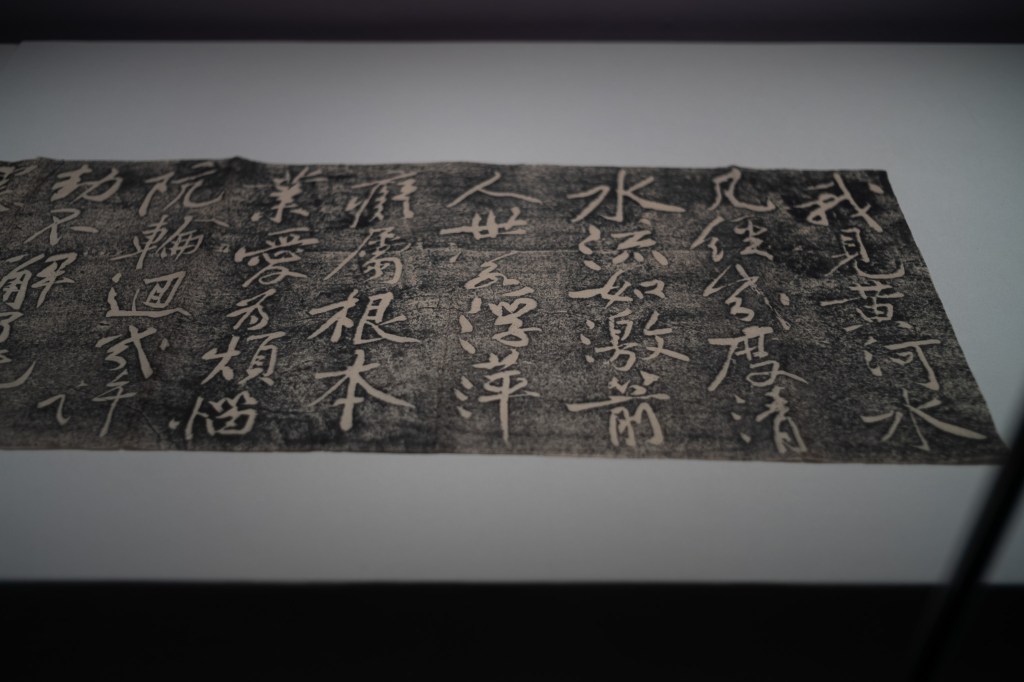 我見黄河水
凡經幾度清
水流如激箭
人世若浮萍
癡屬根本
業愛為煩惱
阬輪迴幾許
劫不解了